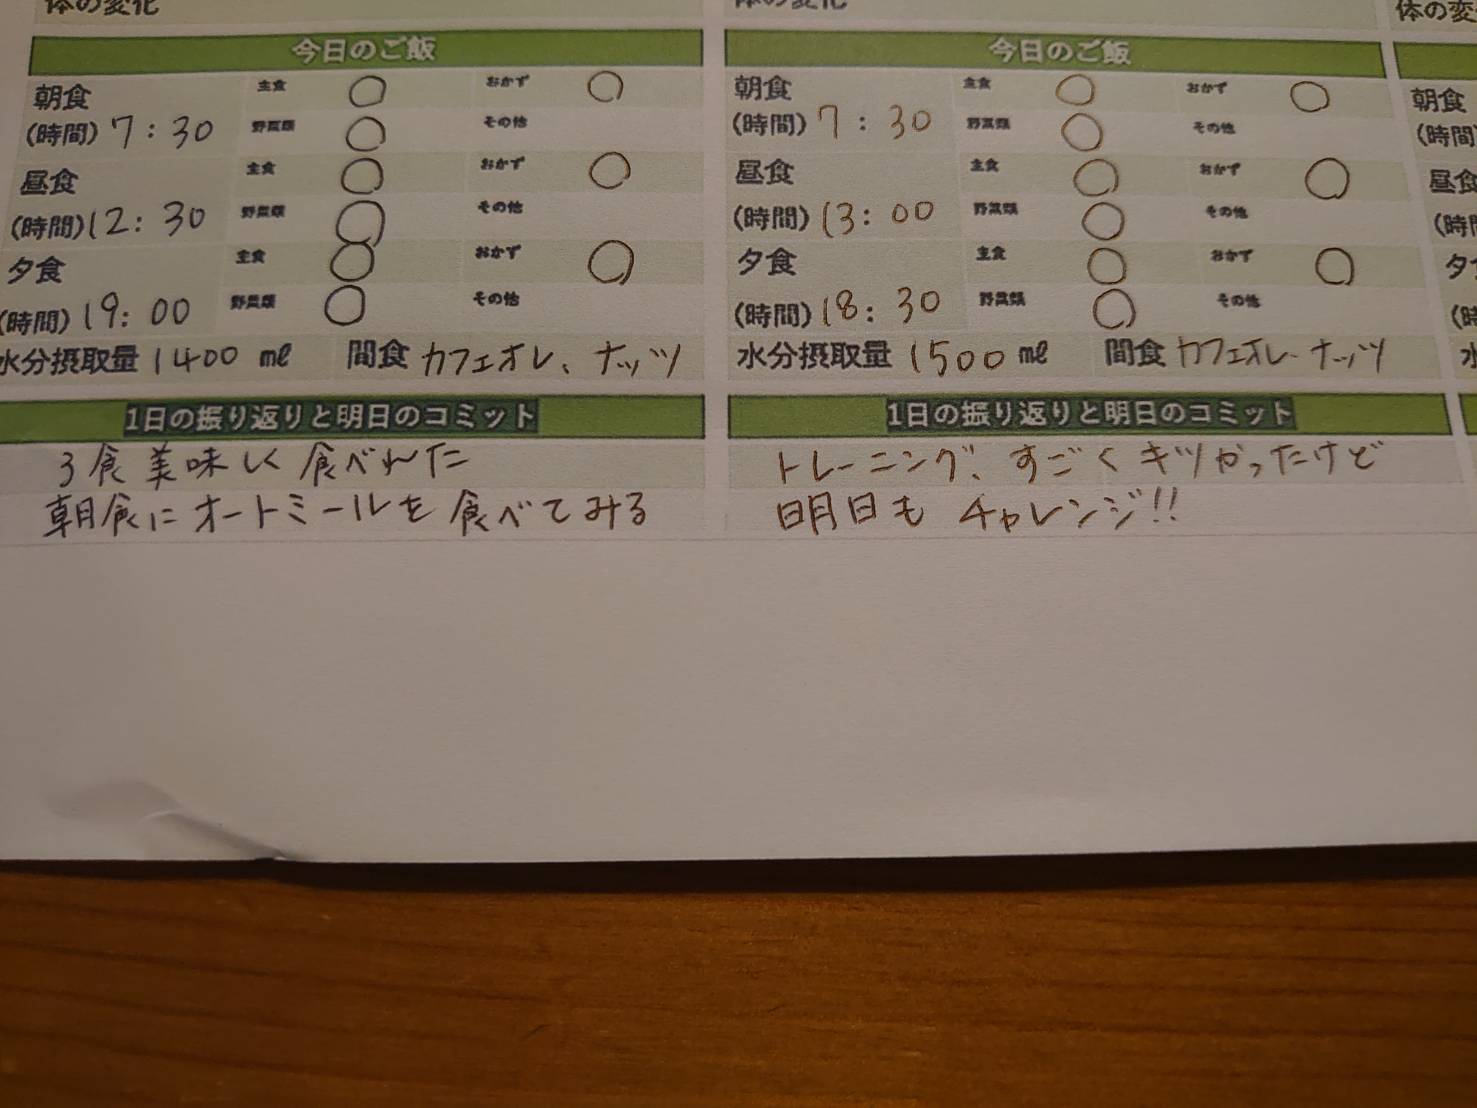 体の変化
今日のご飯
朝食 主食 ○ おかず ○
(時間) 7:30 野菜類 ○ その他
昼食 主食 ○ おかず ○
(時間) 12:30 野菜類 ○ その他
夕食 主食 ○ おかず ○
(時間) 19:00 野菜類 ○ その他
水分摂取量 1400 ml 間食 カフェオレ、ナッツ
1日の振り返りと明日のコミット
3食美味しく食べれた
朝食にオートミールを食べてみる
体の変化
今日のご飯
朝食 主食 ○ おかず ○
(時間) 7:30 野菜類 ○ その他
昼食 主食 ○ おかず ○
(時間) 13:00 野菜類 ○ その他
夕食 主食 ○ おかず ○
(時間) 18:30 野菜類 ○ その他
水分摂取量 1500 ml 間食 カフェオレ、ナッツ
1日の振り返りと明日のコミット
トレーニング、すごくキツかったけど
明日もチャレンジ!!
体の変
朝食
(時間
昼食
(時
夕
(時
水